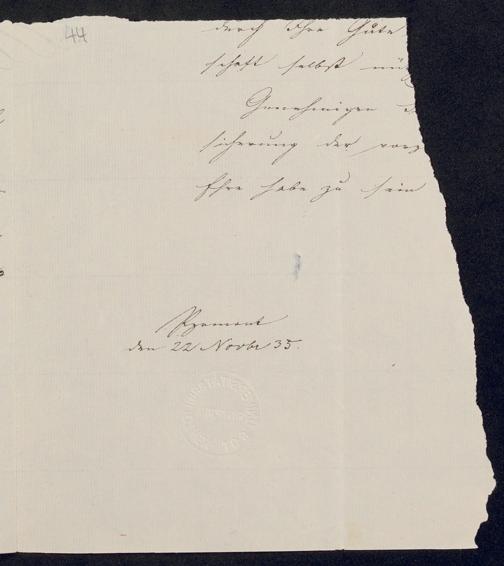 44
durch Ihre Güte
schaft selbst
Genehmigen
sicherung der
Ehre habe zu sein
Pyrmont
den 22 Novbr 35.